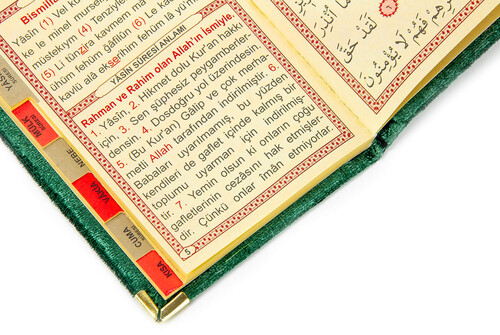 Yâsîn (1)
ke le minel
müstekîym (4)
(5) Li kavmen mâ
ühüm fehüm ğâfilûn (6) Le
kavlü alâ ekserihim fehüm lâ
YÂSÎN SÛRESİ ANLAMI
Rahman ve Rahim olan Allah'ın ismiyle.
1. Yâsîn. 2. Hikmet dolu Kur'an hakkı
için, 3. Sen şüphesiz peygamberler-
densin. 4. Dosdoğru yol üzerindesin.
5. (Bu Kur'an) Gâlip ve çok merha-
metli Allah tarafından indirilmiştir. 6.
Babaları uyarılmamış, bu yüzden
kendileri de gaflet içinde kalmış bir
toplumu uyarman için indirilmiş-
tir. 7. Yemin olsun ki onların çoğu
gafletlerinin cezâsını hak etmişler-
dir. Çünkü onlar îman etmiyorlar.
5
YÂSÎN
MÜLK
NEBE
VÂKIA
CUMA
KISA
لَقَدْ حَقَّ
فَهُمْ لَا يُؤْمِنُونَ